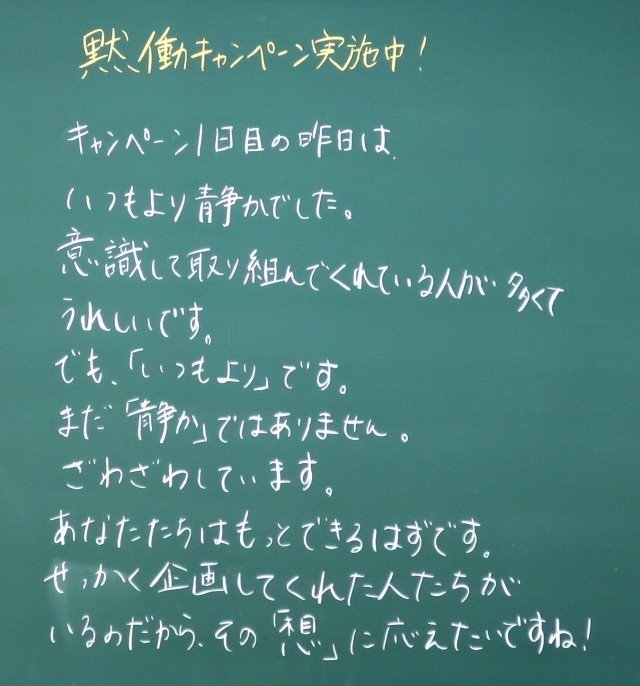 黙働キャンペーン実施中!
キャンペーン1日目の昨日は、
いつもより静かでした。
意識して取り組んでくれている人が多くて
うれしいです。
でも、「いつもより」です。
まだ「静か」ではありません。
ざわざわしています。
あなたたちはもっとできるはずです。
せっかく企画してくれた人たちが
いるのだから、その「想」に応えたいですね!